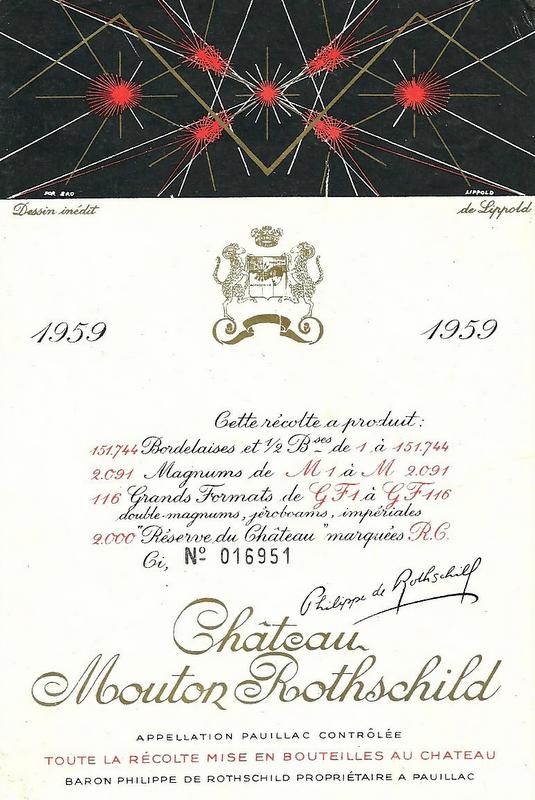 POR BRO
LIPPOLD
Dessin inédit
de Lippold
1959
1959
Cette récolte a produit :
151.744 Bordelaises et 1/2 Bses de 1 à 151.744
2.091 Magnums de M 1 à M 2.091
116 Grands Formats de G F 1 à G F 116
double-magnums, jéroboams, impériales
2.000 "Réserve du Château" marquées R.C.
Ci, Nº 016951
Philippe de Rothschild
Château
Mouton Rothschild
APPELLATION PAUILLAC CONTRÔLÉE
TOUTE LA RÉCOLTE MISE EN BOUTEILLES AU CHATEAU
BARON PHILIPPE DE ROTHSCHILD PROPRIÉTAIRE A PAUILLAC